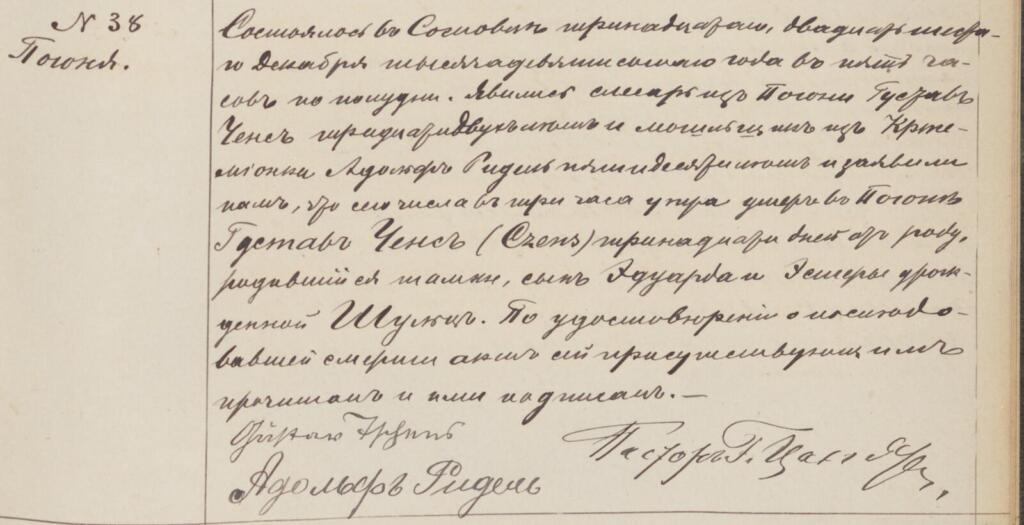 N 38
Погоня.
Состоялось въ Сосновцѣ тринадцатаго, двадцать шеста-
го Декабря тысяча девятисотаго года въ пять ча-
совъ по полудни. Явились слесарь изъ Погони Густавъ
Ченсъ тридцати двухъ лѣтъ и могильщикъ изъ Крже-
міонки Адольфъ Ридель пятидесяти лѣтъ и заявили
намъ, что сего числа въ три часа утра умеръ въ Погонѣ
Густавъ Ченсъ (Czens) тринадцати дней отъ роду,
родившійся тамже, сынъ Эдуарда и Эстеры урож-
денной Шульцъ. По удостовѣреніи о послѣдо-
вавшей смерти актъ сей присутствующимъ
прочитанъ и ими подписанъ. —
Gustav Tschens
Адольфъ Ридель
Пасторъ Г.